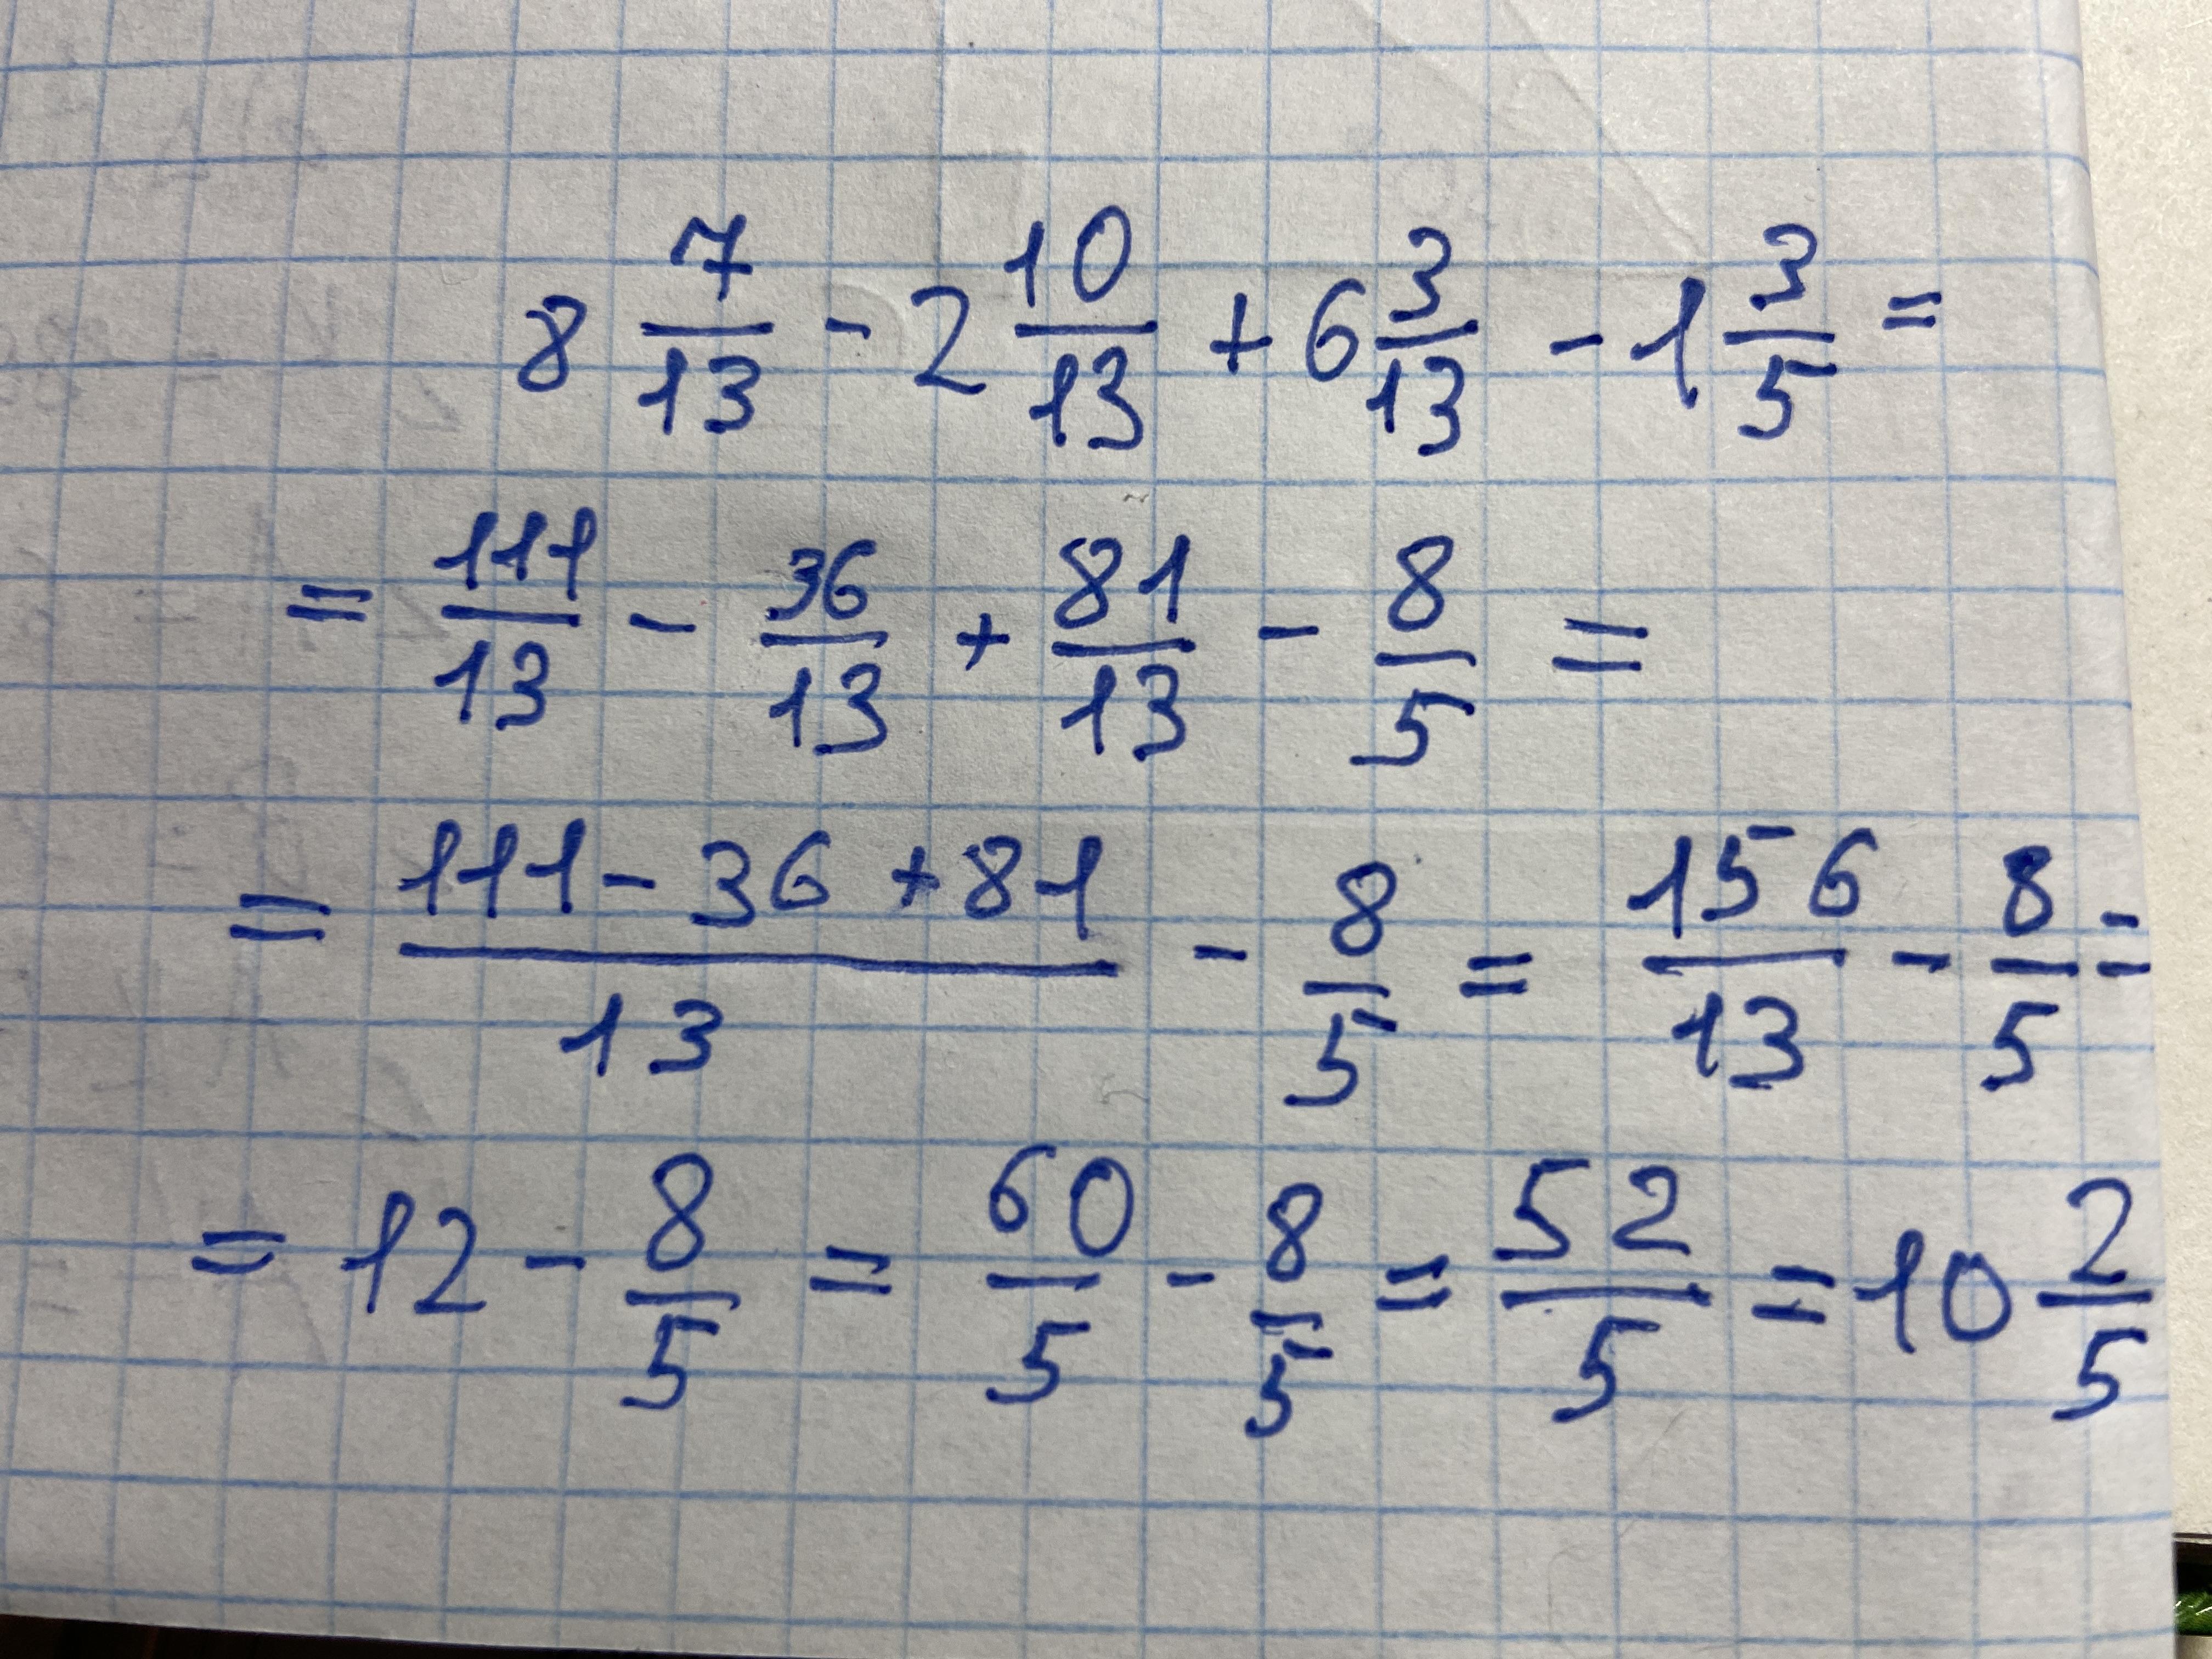 8 7/13 - 2 10/13 + 6 3/13 - 1 3/5 =
= 111/13 - 36/13 + 81/13 - 8/5 =
= (111 - 36 + 81)/13 - 8/5 = 156/13 - 8/5 =
= 12 - 8/5 = 60/5 - 8/5 = 52/5 = 10 2/5